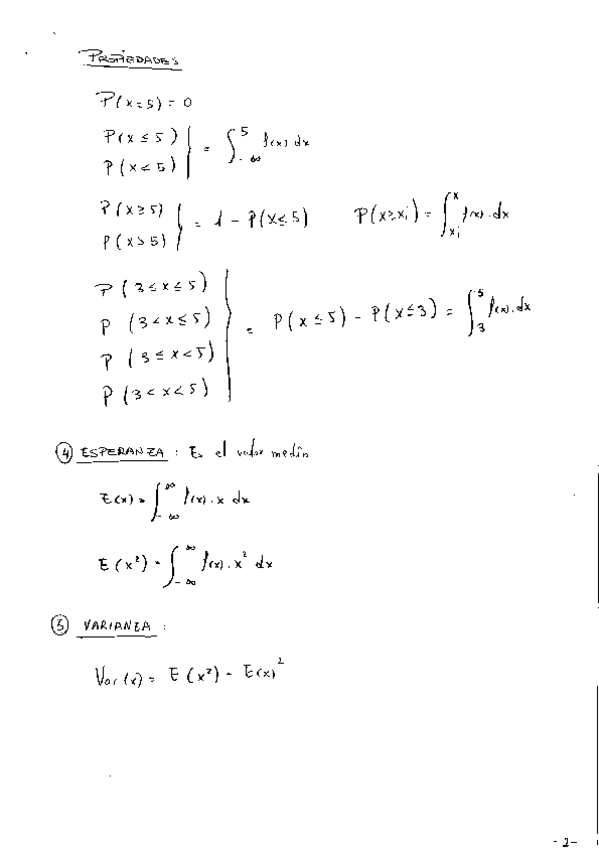 PROPIEDADES
P(x=5) = 0
P(x ≤ 5)
P(x < 5) } = ∫_{-∞}^{5} f(x) dx
P(x ≥ 5)
P(x > 5) } = 1 - P(x ≤ 5)    P(x ≥ xi) = ∫_{xi}^{x} f(x) . dx
P (3 ≤ x ≤ 5)
P (3 < x ≤ 5)
P (3 ≤ x < 5)
P (3 < x < 5) } = P(x ≤ 5) - P(x ≤ 3) = ∫_{3}^{5} f(x) . dx
④ ESPERANZA : Es el valor medio
E(x) = ∫_{-∞}^{∞} f(x) . x dx
E(x²) = ∫_{-∞}^{∞} f(x) . x² dx
⑤ VARIANZA :
Var(x) = E(x²) - E(x)²
-2-